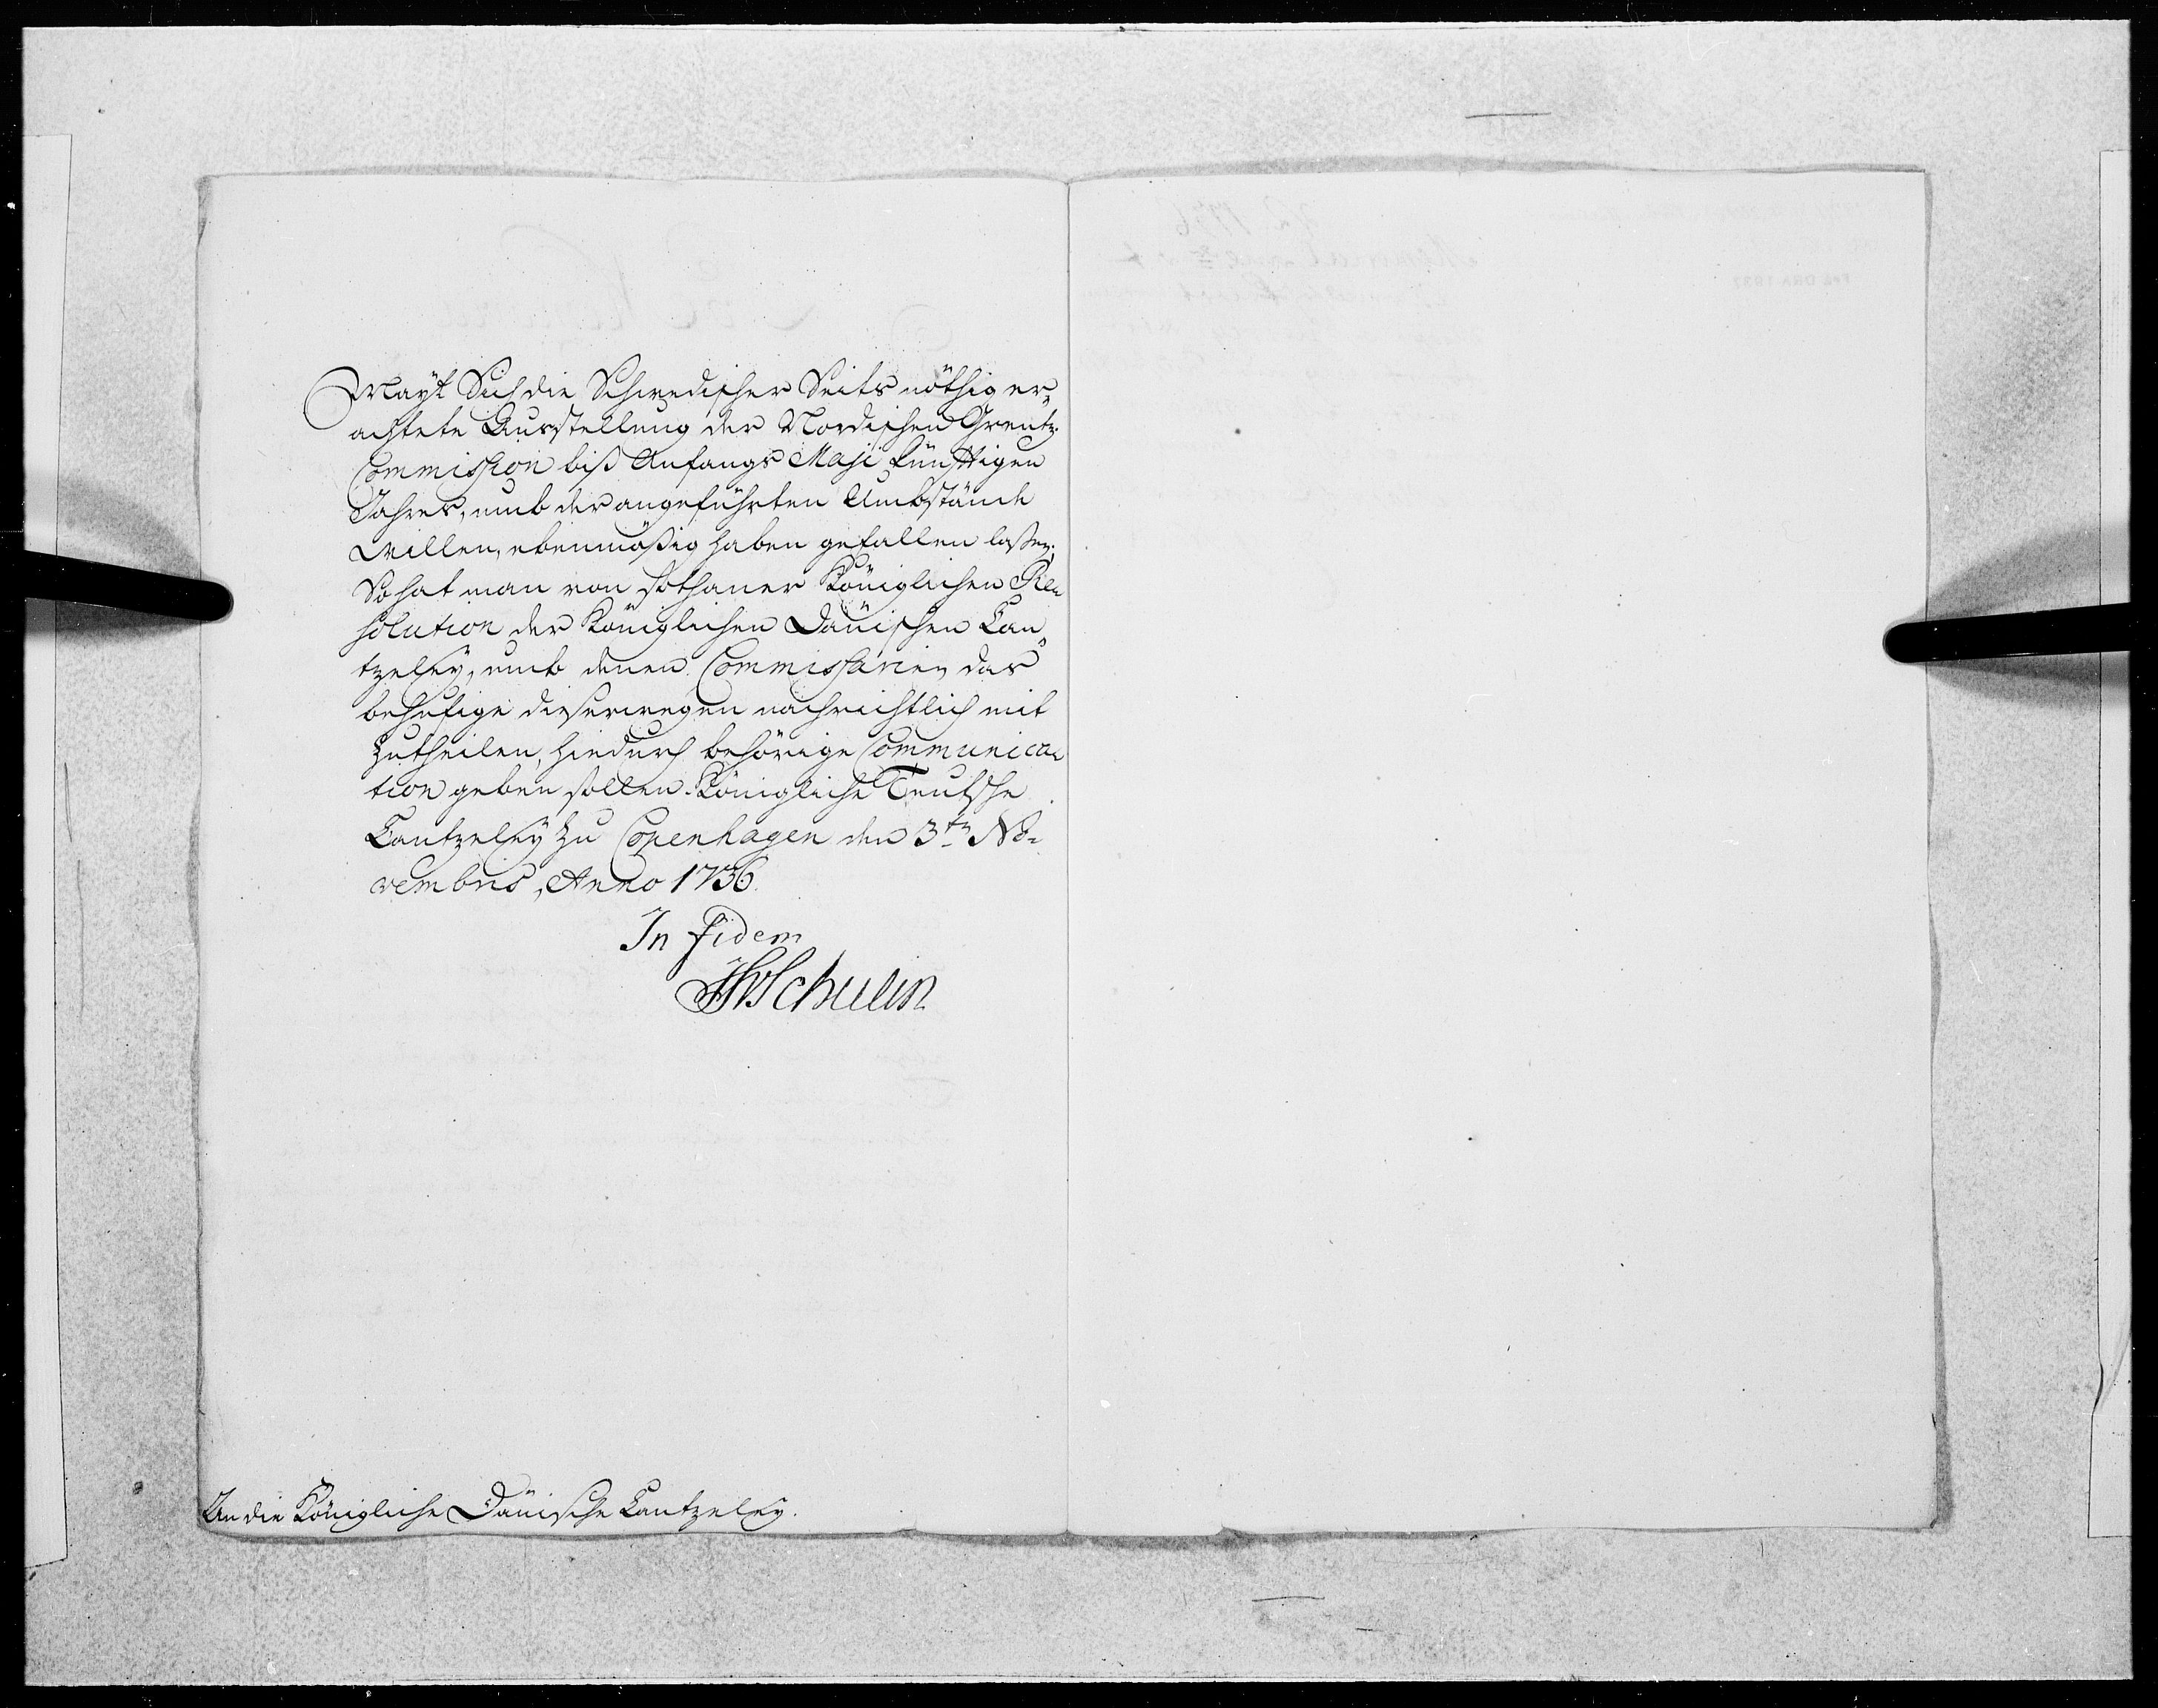 Mayt Sich die Schwedischer Seits nöthig er„
achtete Ausstellung der Nordischen Grentz-
Commission biß Anfangs Maji künfftigen
Jahres, umb der angeführten Umbstände
Willen, ebenmäßig haben gefallen laßen;
So hat man von sothaner Königlichen Re„
solution der Königlichen Dänischen Can„
tzeley, umb denen Commissarien das
behufige dieserwegen nachrichtlich mit
zutheilen, hiedurch behörige Communica„
tion geben sollen. Königliche Teutsche
Cantzeley zu Copenhagen den 3tn No-
vembris, Anno 1736.
In fidem
JHvSchulin
An die Königliche Dänische Cantzeley.